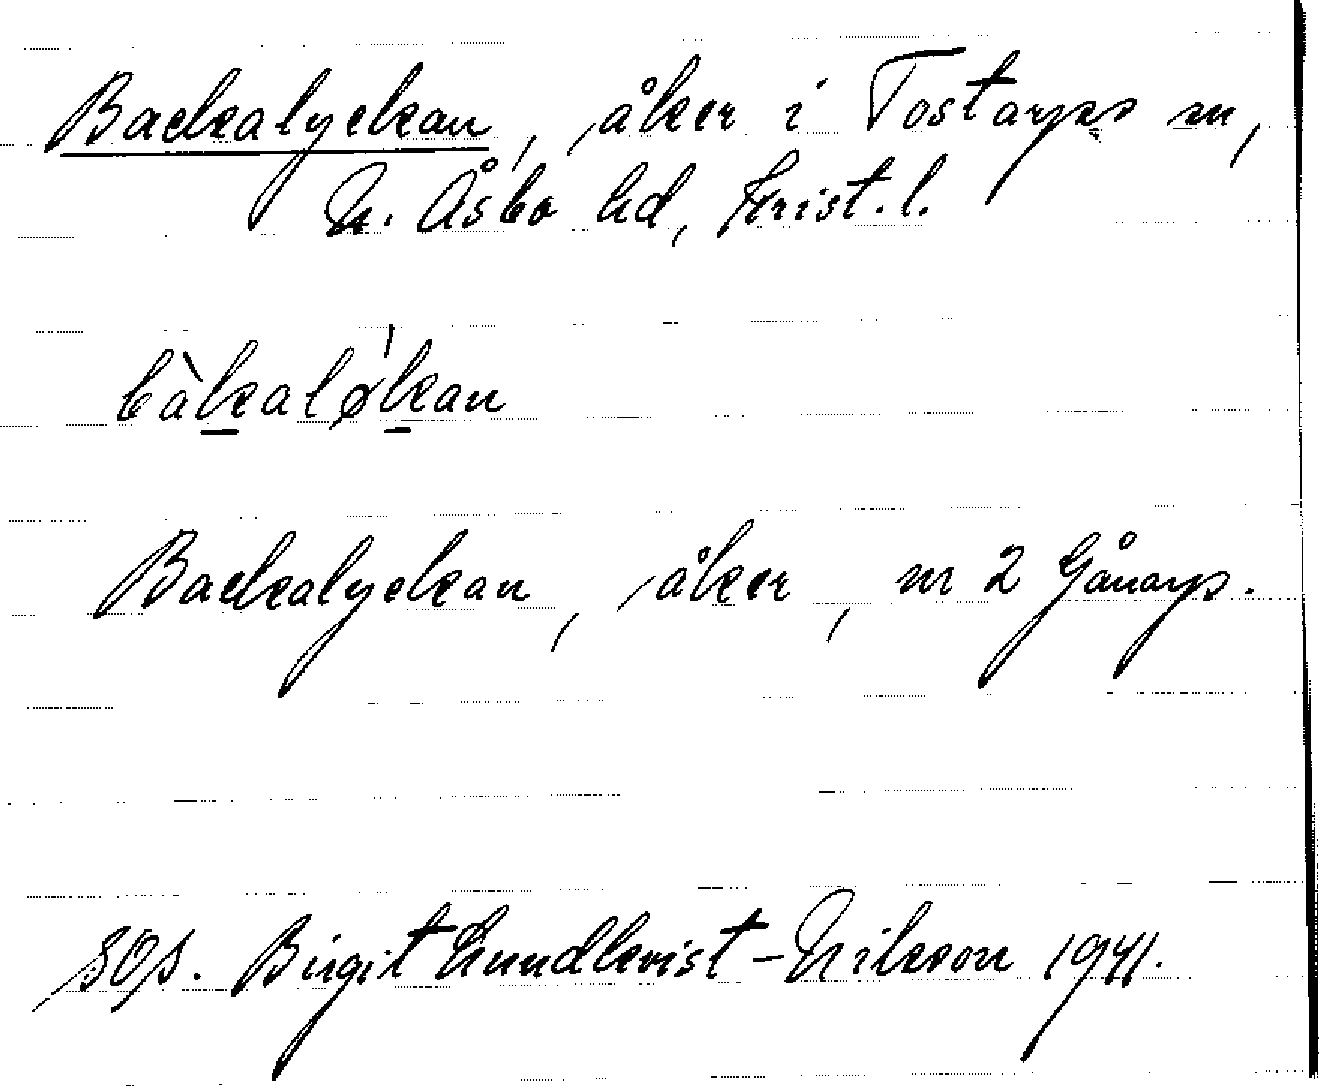 Backalyckan, åker i Tostarps sn,
N. Åsbo hd, Krist. l.
bàkaløkan
Backalyckan, åker, nr 2 Gånarp.
Birgit Lundkvist-Nilsson 1941.